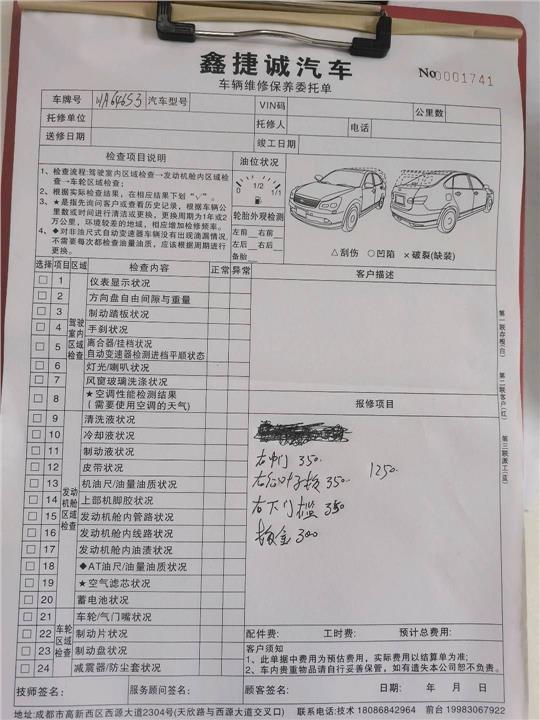 鑫捷诚汽车
No 0001741
车辆维修保养委托单
车牌号 汽车型号 VIN码 公里数
托修单位 托修人 电话
送修日期 竣工日期
检查项目说明
1、检查流程:驾驶室内区域检查→发动机舱内区域检
查→车轮区域检查;
2、根据实际检查结果，在相应结果下划“√”。
3、★是指先询问客户或查看历史记录，根据车辆公
里数或时间进行清洁或更换，更换周期为1年或2
万公里，环境较差的地域，相应增加检修频率。
4、◆对非油尺式自动变速器车辆没有出现滴漏情况,
不需要每次都检查油量油质，应该根据周期进行
更换。
油位状况
0 1/2 1/1
轮胎外观检测
左前 右前
左后 右后
备胎
△刮伤 ○凹陷 ×破裂(缺装)
选择 项目 区域 检查内容 正常 异常
驾驶室内区域检查
1 仪表显示状况
2 方向盘自由间隙与重量
3 制动踏板状况
4 手刹状况
5 离合器/挂档状况
自动变速器检测进档平顺状态
6 灯光/喇叭状况
7 风窗玻璃洗涤状况
8 ★空调性能检测结果
(需要使用空调的天气)
发动机舱区域检查
9 清洗液状况
10 冷却液状况
11 制动液状况
12 皮带状况
13 机油尺/油量油质状况
14 上部机脚胶状况
15 发动机舱内管路状况
16 发动机舱内线路状况
17 发动机舱内油渍状况
18 ◆AT油尺/油量油质状况
19 ★空气滤芯状况
20 蓄电池状况
车轮区域检查
21 车轮/气门嘴状况
22 制动片状况
23 制动盘状况
24 减震器/防尘套状况
客户描述
报修项目
右中门 350
右后叶子板 350
1250
右下门槛 350
钣金 300
第一联存根(白)
第二联客户(红)
第三联派工(蓝)
配件费: 工时费: 预计总费用:
客户须知
1、此单据中费用为预估费用，实际费用以结算单为准。
2、车内贵重物品请自行妥善保管，如有遗失本公司恕不负责。
技师签名: 服务顾问签名: 顾客签名: 日期: 年 月 日
地址:成都市高新西区西源大道2304号(天欣路与西源大道交叉口) 联系电话:技术 18086842964 前台 19983067922